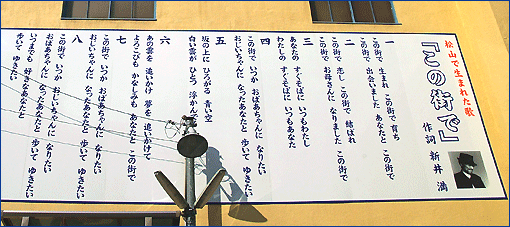 松山で生まれた歌
『この街で』
作詞 新井 満
一
この街で 生まれ この街で 育ち
この街で 出会いました あなたと この街で
二
この街で 恋し この街で 結ばれ
この街で お母さんに なりました この街で
三
あなたの すぐそばに いつもわたし
わたしの すぐそばに いつもあなた
四
この街で いつか おばあちゃんに なりたい
おじいちゃんに なったあなたと 歩いて ゆきたい
五
坂の上に ひろがる 青い空
白い雲が ひとつ 浮かんで
六
あの雲を 追いかけ 夢を 追いかけて
よろこびも かなしみも あなたと この街で
七
この街で いつか おばあちゃんに なりたい
おじいちゃんに なったあなたと 歩いて ゆきたい
八
この街で いつか おじいちゃんに なりたい
おばあちゃんに なったあなたと 歩いて ゆきたい
いつまでも 好きなあなたと
歩いて ゆきたい